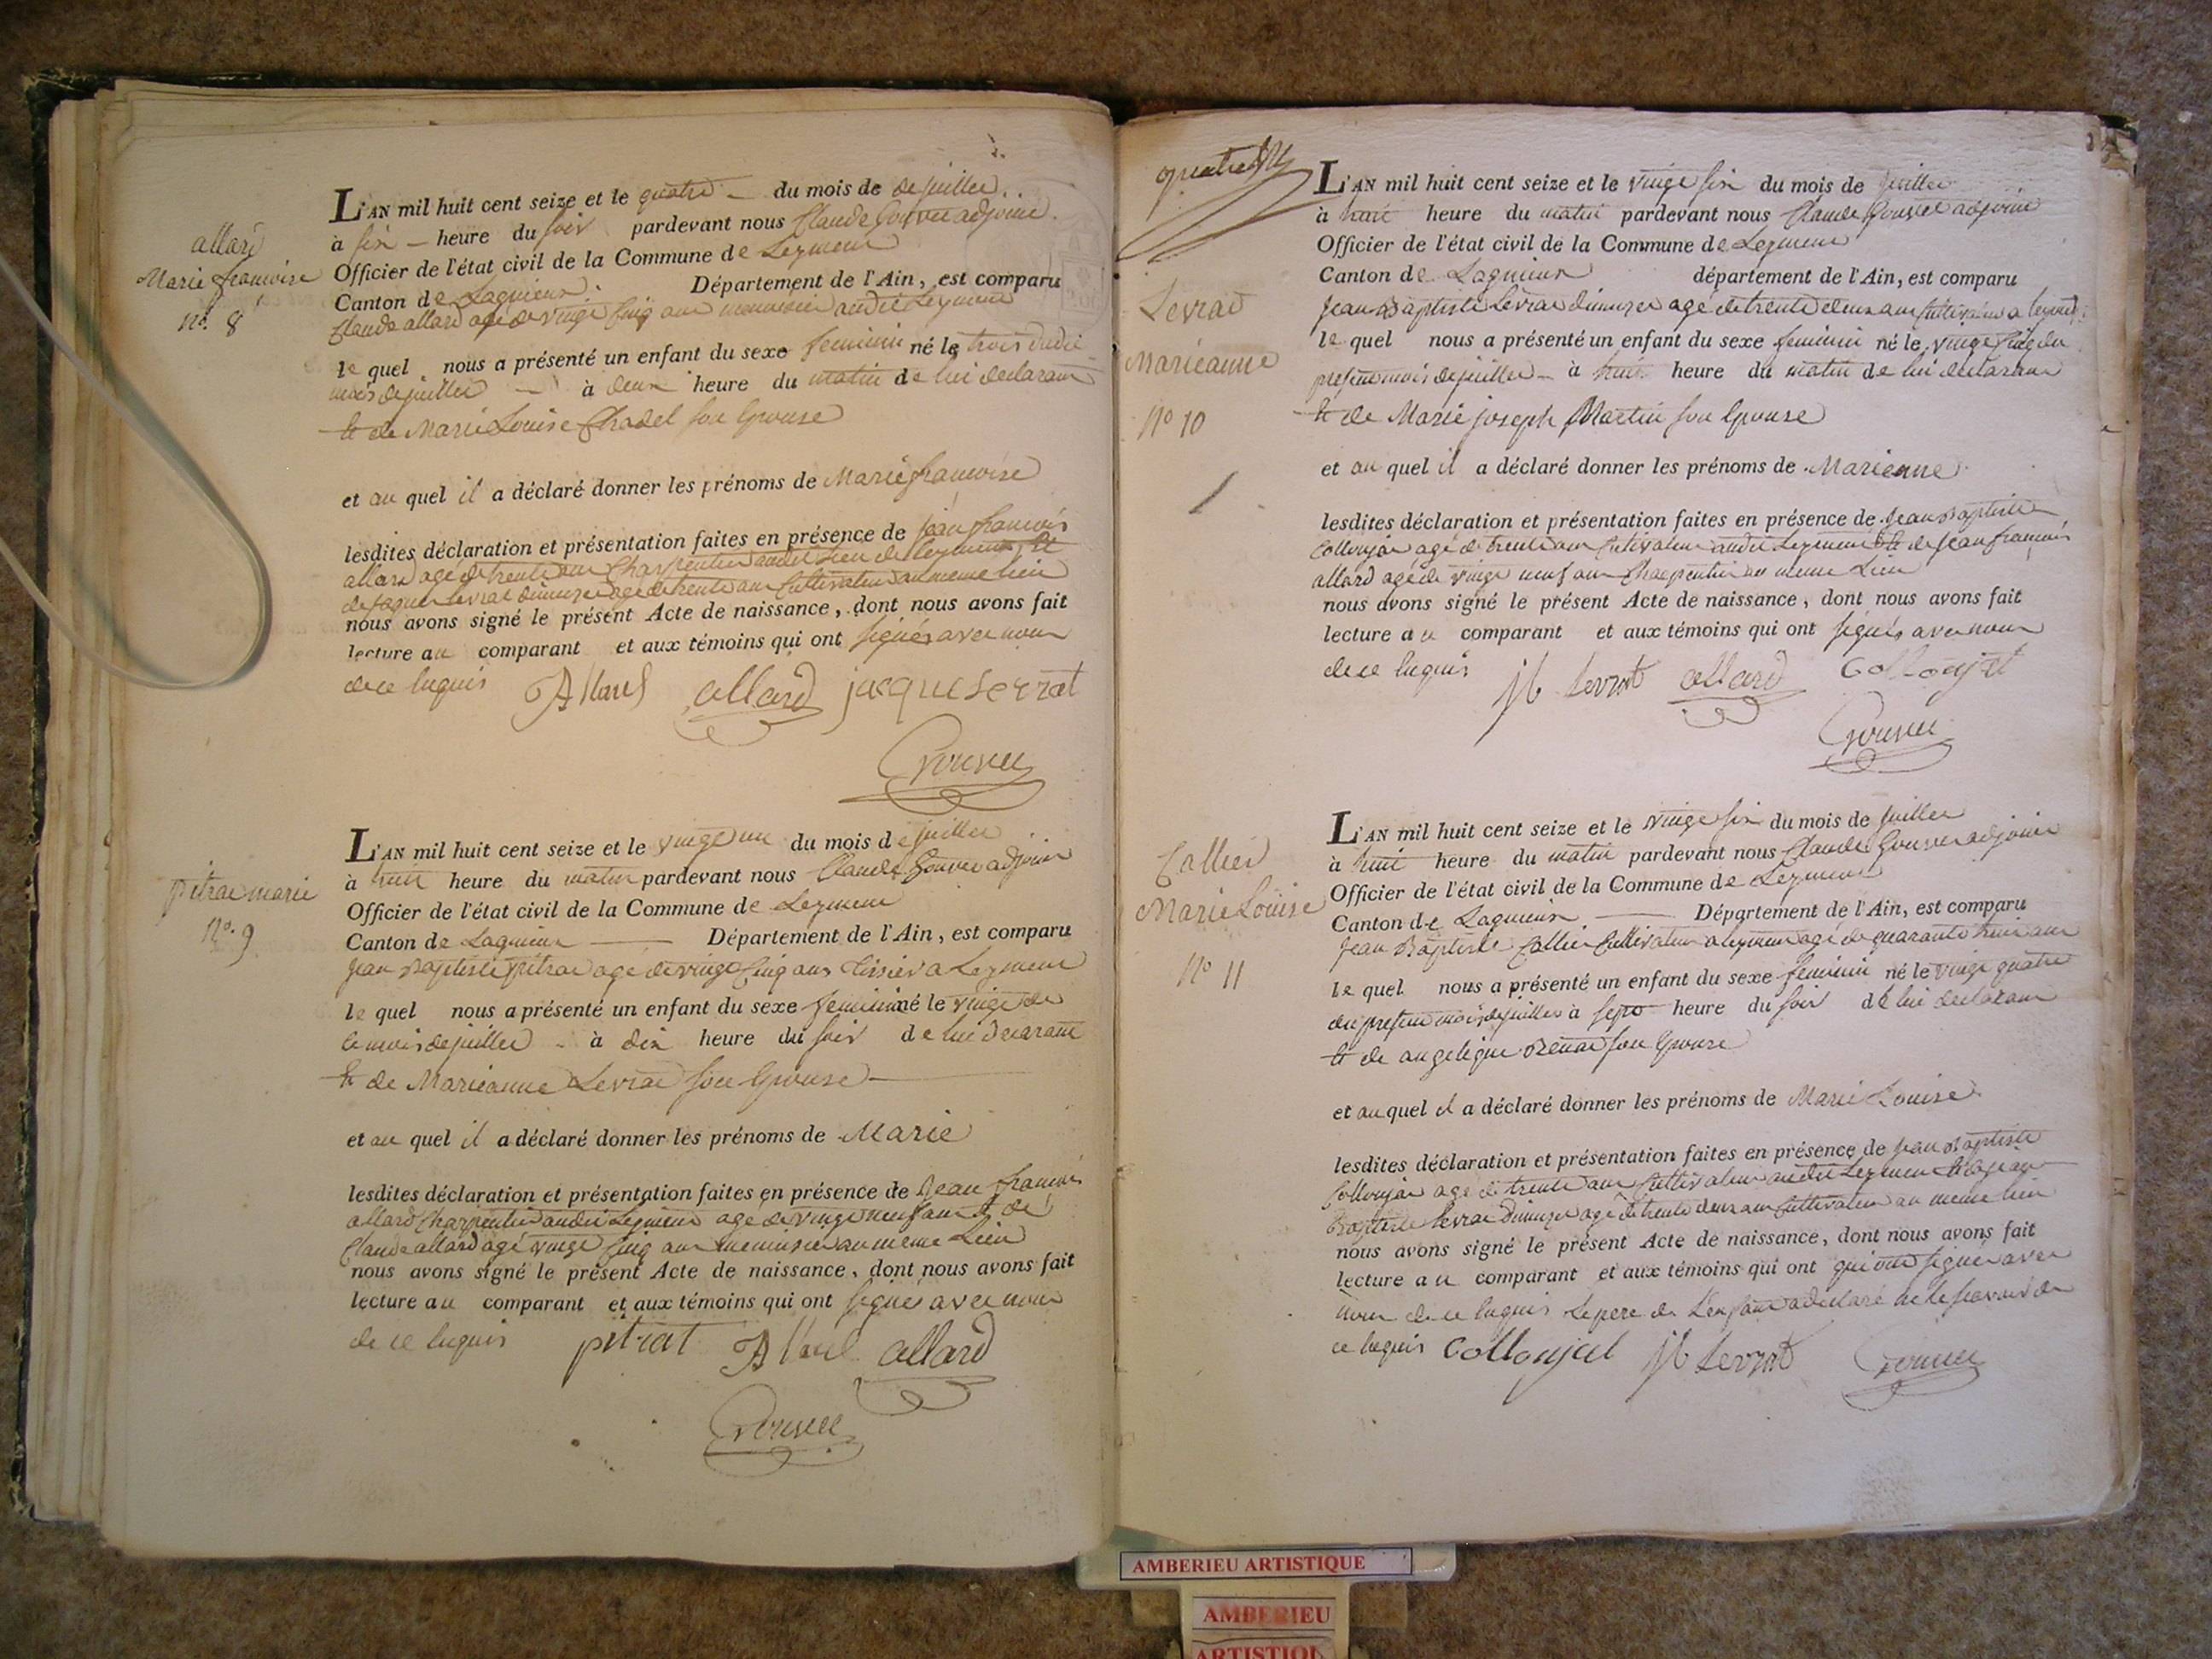 allard
Marie francoise
no. 8
L'AN mil huit cent seize et le quatre du mois de de juillet
à six heure du soir pardevant nous Claude Gouvet adjoint
Officier de l'état civil de la Commune de Leyment
Canton de Lagnieux. Département de l'Ain, est comparu
Claude allard agé de vingt cinq ans menuisier audit Leyment
le quel nous a présenté un enfant du sexe feminin né le trois dudit
mois de juillet à deux heure du matin de lui declarant
et de Marie Louise Chadel son Epouse
et au quel il a déclaré donner les prénoms de Marie francoise
lesdites déclaration et présentation faites en présence de jean francois
allard agé de trente ans Charpentier audit lieu de Leyment et
de Jaque Levrat agé de trente ans Cultivateur au meme lieu
nous avons signé le présent Acte de naissance, dont nous avons fait
lecture au comparant et aux témoins qui ont signés avec nous
de ce luquis Allard allard jacque Levrat
Gouvet
pitrat marie
No. 9
L'AN mil huit cent seize et le vingt un du mois de juillet
à huit heure du matin pardevant nous Claude Gouvet adjoint
Officier de l'état civil de la Commune de Leyment
Canton de Lagnieux Département de l'Ain, est comparu
Jean Baptiste Pitrat agé de vingt cinq ans tissier a Leyment
le quel nous a présenté un enfant du sexe feminin né le vingt de
ce mois de juillet à dix heure du soir de lui declarant
et de Marieanne Levrat son Epouse
et au quel il a déclaré donner les prénoms de Marie
lesdites déclaration et présentation faites en présence de Jean francois
allard Charpentier audit Leyment agé de vingt neuf ans et de
Claude allard agé vingt cinq ans menuisier au meme Lieu
nous avons signé le présent Acte de naissance, dont nous avons fait
lecture au comparant et aux témoins qui ont signés avec nous
de ce luquis pitrat Allard allard
Gouvet
quatre
Levrat
Marieanne
No 10
L'AN mil huit cent seize et le vingt six du mois de juillet
à huit heure du matin pardevant nous Claude Gouvet adjoint
Officier de l'état civil de la Commune de Leyment
Canton de Lagnieux département de l'Ain, est comparu
Jean Baptiste Levrat agé de trente deux ans Cultivateur a Leyment
le quel nous a présenté un enfant du sexe feminin né le vingt cinq du
present mois de juillet à huit heure du matin de lui declarant
et de Marie joseph Martin son Epouse
et au quel il a déclaré donner les prénoms de Marieanne
lesdites déclaration et présentation faites en présence de Jean Baptiste
Collonjat agé de trente ans Cultivateur audit Leyment et de Jean francois
allard agé de vingt neuf ans Charpentier au meme Lieu
nous avons signé le présent Acte de naissance, dont nous avons fait
lecture au comparant et aux témoins qui ont signés avec nous
de ce luquis jb Levrat allard Collonjat
Gouvet
Callier
Marie Louise
No 11
L'AN mil huit cent seize et le vingt six du mois de juillet
à huit heure du matin pardevant nous Claude Gouvet adjoint
Officier de l'état civil de la Commune de Leyment
Canton de Lagnieux Département de l'Ain, est comparu
Jean Baptiste Callier Cultivateur a Leyment agé de quarante huit ans
le quel nous a présenté un enfant du sexe feminin né le vingt quatre
du present mois de juillet à sept heure du soir de lui declarant
et de angelique Benat son Epouse
et au quel il a déclaré donner les prénoms de Marie Louise
lesdites déclaration et présentation faites en présence de Jean Baptiste
Collonjat agé de trente ans Cultivateur audit Leyment et a Jean
Baptiste Levrat agé de trente deux ans Cultivateur au meme lieu
nous avons signé le présent Acte de naissance, dont nous avons fait
lecture au comparant et aux témoins qui ont qui ont signés avec
nous de ce luquis Le pere de L'enfant a declaré ne le savoir de
ce luquis Collonjat jb Levrat Gouvet
AMBERIEU ARTISTIQUE
AMBERIEU
ARTISTIQU